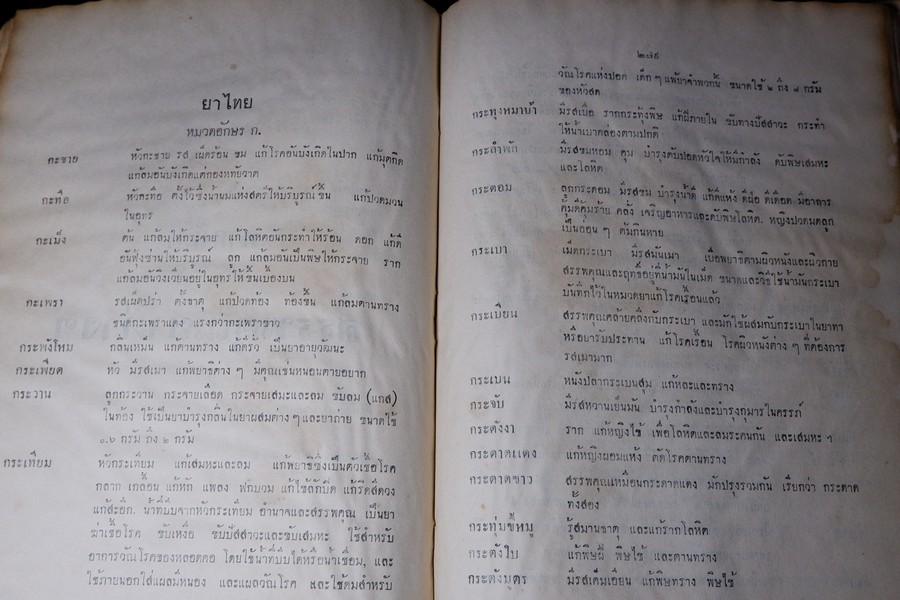 ยาไทย
หมวดอักษร ก.
กะชาย หัวกะชาย รส เผ็ดร้อน ขม แก้โรคอันบังเกิดในปาก แก้มุตกิด
แก้ลมอันบังเกิดแต่กองหทยวาต
กะทือ หัวกะทือ ตั้งไว้ซึ่งน้ำนมแห่งสตรีให้บริบูรณ์ขึ้น แก้ปวดมวน
ในอุทร
กะเม็ง ต้น แก้ลมให้กระจาย แก้โลหิตอันกระทำให้ร้อน ดอก แก้ดี
อันฟุ้งซ่านให้บริบูรณ์ ลูก แก้ลมอันเป็นพิษให้กระจาย ราก
แก้ลมอันวิงเวียนอยู่ในอุทรให้ขึ้นเบื้องบน
กะเพรา รสเผ็ดปร่า ตั้งธาตุ แก้ปวดท้อง ท้องขึ้น แก้ลมตานทราง
ชนิดกะเพราแดง แรงกว่ากะเพราขาว
กระพังโหม กลิ่นเหม็น แก้ตานทราง แก้ดีรั่ว เป็นยาอายุวัฒนะ
กระเพียด หัว มีรสเมา แก้พยาธิต่าง ๆ มีคุณเช่นหนอนตายอยาก
กระวาน ลูกกระวาน กระจายเลือด กระจายเสมะและลม ขับลม (แกส)
ในท้อง ใช้เป็นยาบำรุงกลิ่นในยาผสมต่าง ๆ และยาถ่าย ขนาดใช้
๐.๖ กรัม ถึง ๒ กรัม
กระเทียม หัวกระเทียม แก้เสมหะและลม แก้พยาธิซึ่งเป็นตัวเชื้อโรค
กลาก เกลื้อน แก้หัก แพลง ฟกบวม แก้ไข้สักปิด แก้ริดสีดวง
แก้สะอึก. น้ำที่บีบจากหัวกระเทียม อำนาจและสรรพคุณ เป็นยา
ฆ่าเชื้อโรค ขับเหงื่อ ขับปัสสาวะและขับเสมหะ ใช้สำหรับ
อาการวัณโรคของหลอดคอ โดยใช้น้ำที่บีบได้หรือน้ำเชื่อม, และ
ใช้ภายนอกใส่แผลมีหนอง และแผลวัณโรค และใช้ดมสำหรับ
๒๗๙
วัณโรคแห่งปอด เด็ก ๆ แพ้ยาจำพวกนี้ ขนาดใช้ ๒ ถึง ๘ กรัม
ของหัวสด
กระทุงหมาบ้า มีรสเบื่อ รากกระทุ้งพิษ แก้ฝีภายใน ขับทางปัสสาวะ กระทำ
ให้น้ำเบาคล่องตามปกติ
กระลำพัก มีรสขมหอม คุม บำรุงตับปอดหัวใจให้มีกำลัง ดับพิษเสมหะ
และโลหิต
กระดอม ลูกกระดอม มีรสขม บำรุงน้ำดี แก้ดีแห้ง ดีฝ่อ ดีเดือด มีอาการ
คุ้มดีคุ้มร้าย คลั่ง เจริญอาหารและดับพิษโลหิต. หญิงปวดมดลูก
เป็นก่อน ๆ ต้มกินหาย
กระเบา เม็ดกระเบา มีรสมันเมา เบื่อพยาธิตามผิวหนังและผิวกาย
สรรพคุณและฤทธิ์อยู่ที่น้ำมันในเม็ด ขนาดและวิธีใช้น้ำมันกระเบา
บันทึกไว้ในหมวดยาแก้โรคเรื้อนแล้ว
กระเบียน สรรพคุณคล้ายคลึงกับกระเบา และมักใช้ผสมกับกระเบาในยาทา
หรือยารับประทาน แก้โรคเรื้อน โรคผิวหนังต่าง ๆ ที่ต้องการ
รสเมามาก
กระเบน หนังปลากระเบนสุม แก้หละและทราง
กระจับ มีรสหวานเย็นมัน บำรุงกำลังและบำรุงกุมารในครรภ์
กระดังงา ราก แก้หญิงไข้ เพื่อโลหิตและลมระคนกัน และเสมหะ ฯ
กระดาดแดง แก้หญิงผอมแห้ง ตัดโรคตานทราง
กระดาดขาว สรรพคุณเหมือนกระดาดแดง มักปรุงรวมกัน เรียกว่า กระดาด
ทั้งสอง
กระทุ่มขี้หมู รู้สมานธาตุ และแก้รากโลหิต
กระดังใบ แก้พิษฝี พิษไข้ และตานทราง
กระดังมูตร มีรสเค็มเอียน แก้พิษทราง พิษไข้